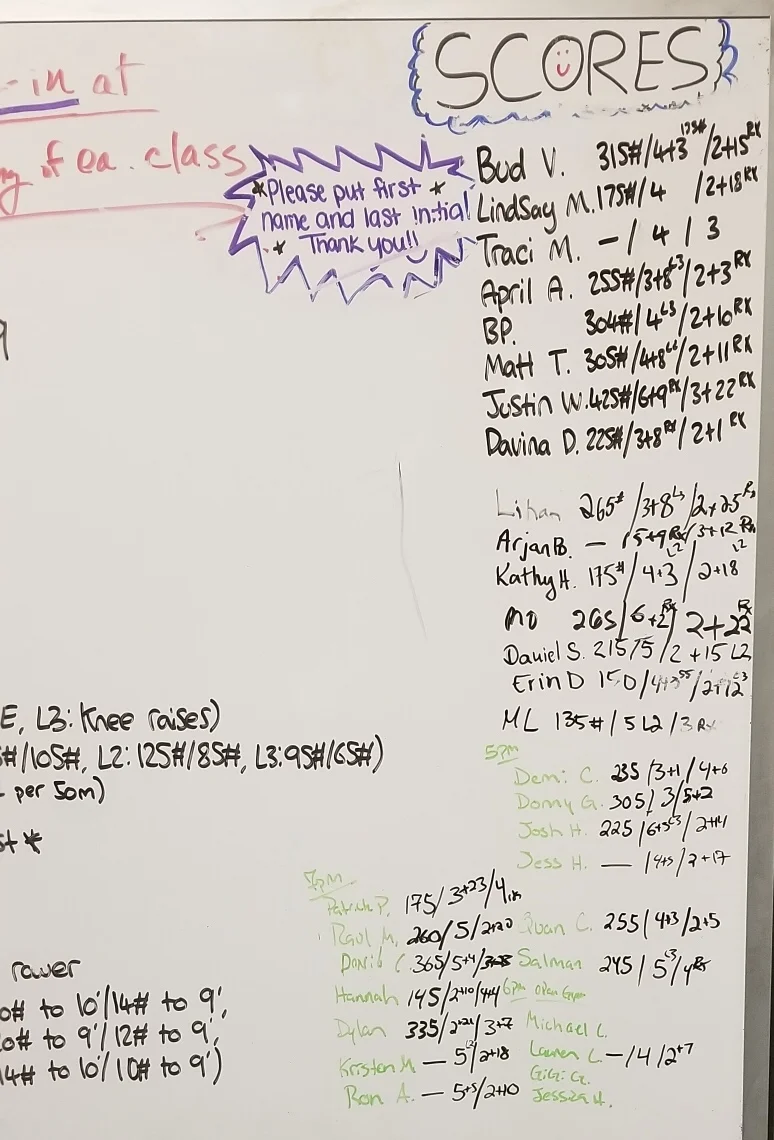 SCORES
-in at
of ea. class
*Please put first *
name and last initial
* Thank you!!
Bud V. 315#/4+3 175#/2+15 RX
Lindsay M. 175#/4 /2+18 RX
Traci M. - / 4 / 3
April A. 255#/3+8 L3/2+3 RX
BP. 304#/4 L3/2+10 RX
Matt T. 305#/4+8 /2+11 RX
Justin W. 425#/6+9 RX/3+22 RX
Davina D. 225#/3+8 RX/2+1 RX
265#/3+8 L3/2+25 Rx
Arjan B. — /5+9 Rx/3+12 Rx
Kathy H. 175#/4+3 L2/2+18 L2
MO 265/6+2 Rx/2+22 Rx
Daniel S. 215/5/2+15 L2
Erin D 150/
ML 135#/5 L2/3 Rx
E, L3: Knee raises)
#/105#, L2: 125#/85#, L3: 95#/65#)
per 50m)
st *
5pm
Demi C. 235/3+1/4+6
Donny G. 305/3/5+2
Josh H. 225/6+3 L3/2+14
Jess H. — /4+5/2+17
7pm
Patrick P. 175/3+23/4
Raul M. 260/5/2+20
Quan C. 255/4+3/2+5
David C. 365/5+4/
Salman 245/5 L3/4 Rx
Hannah 145/2+10/4+4
6pm Open Gym
Dylan 335/2+21/3+7
Michael L.
Kristen M — 5 L2/2+18
Lauren L - /4/2+7
GiGi G.
Ron A. — 5+5/2+10
Jessica H.
rower
0# to 10'/14# to 9',
0# to 9'/12# to 9',
14# to 10'/10# to 9')